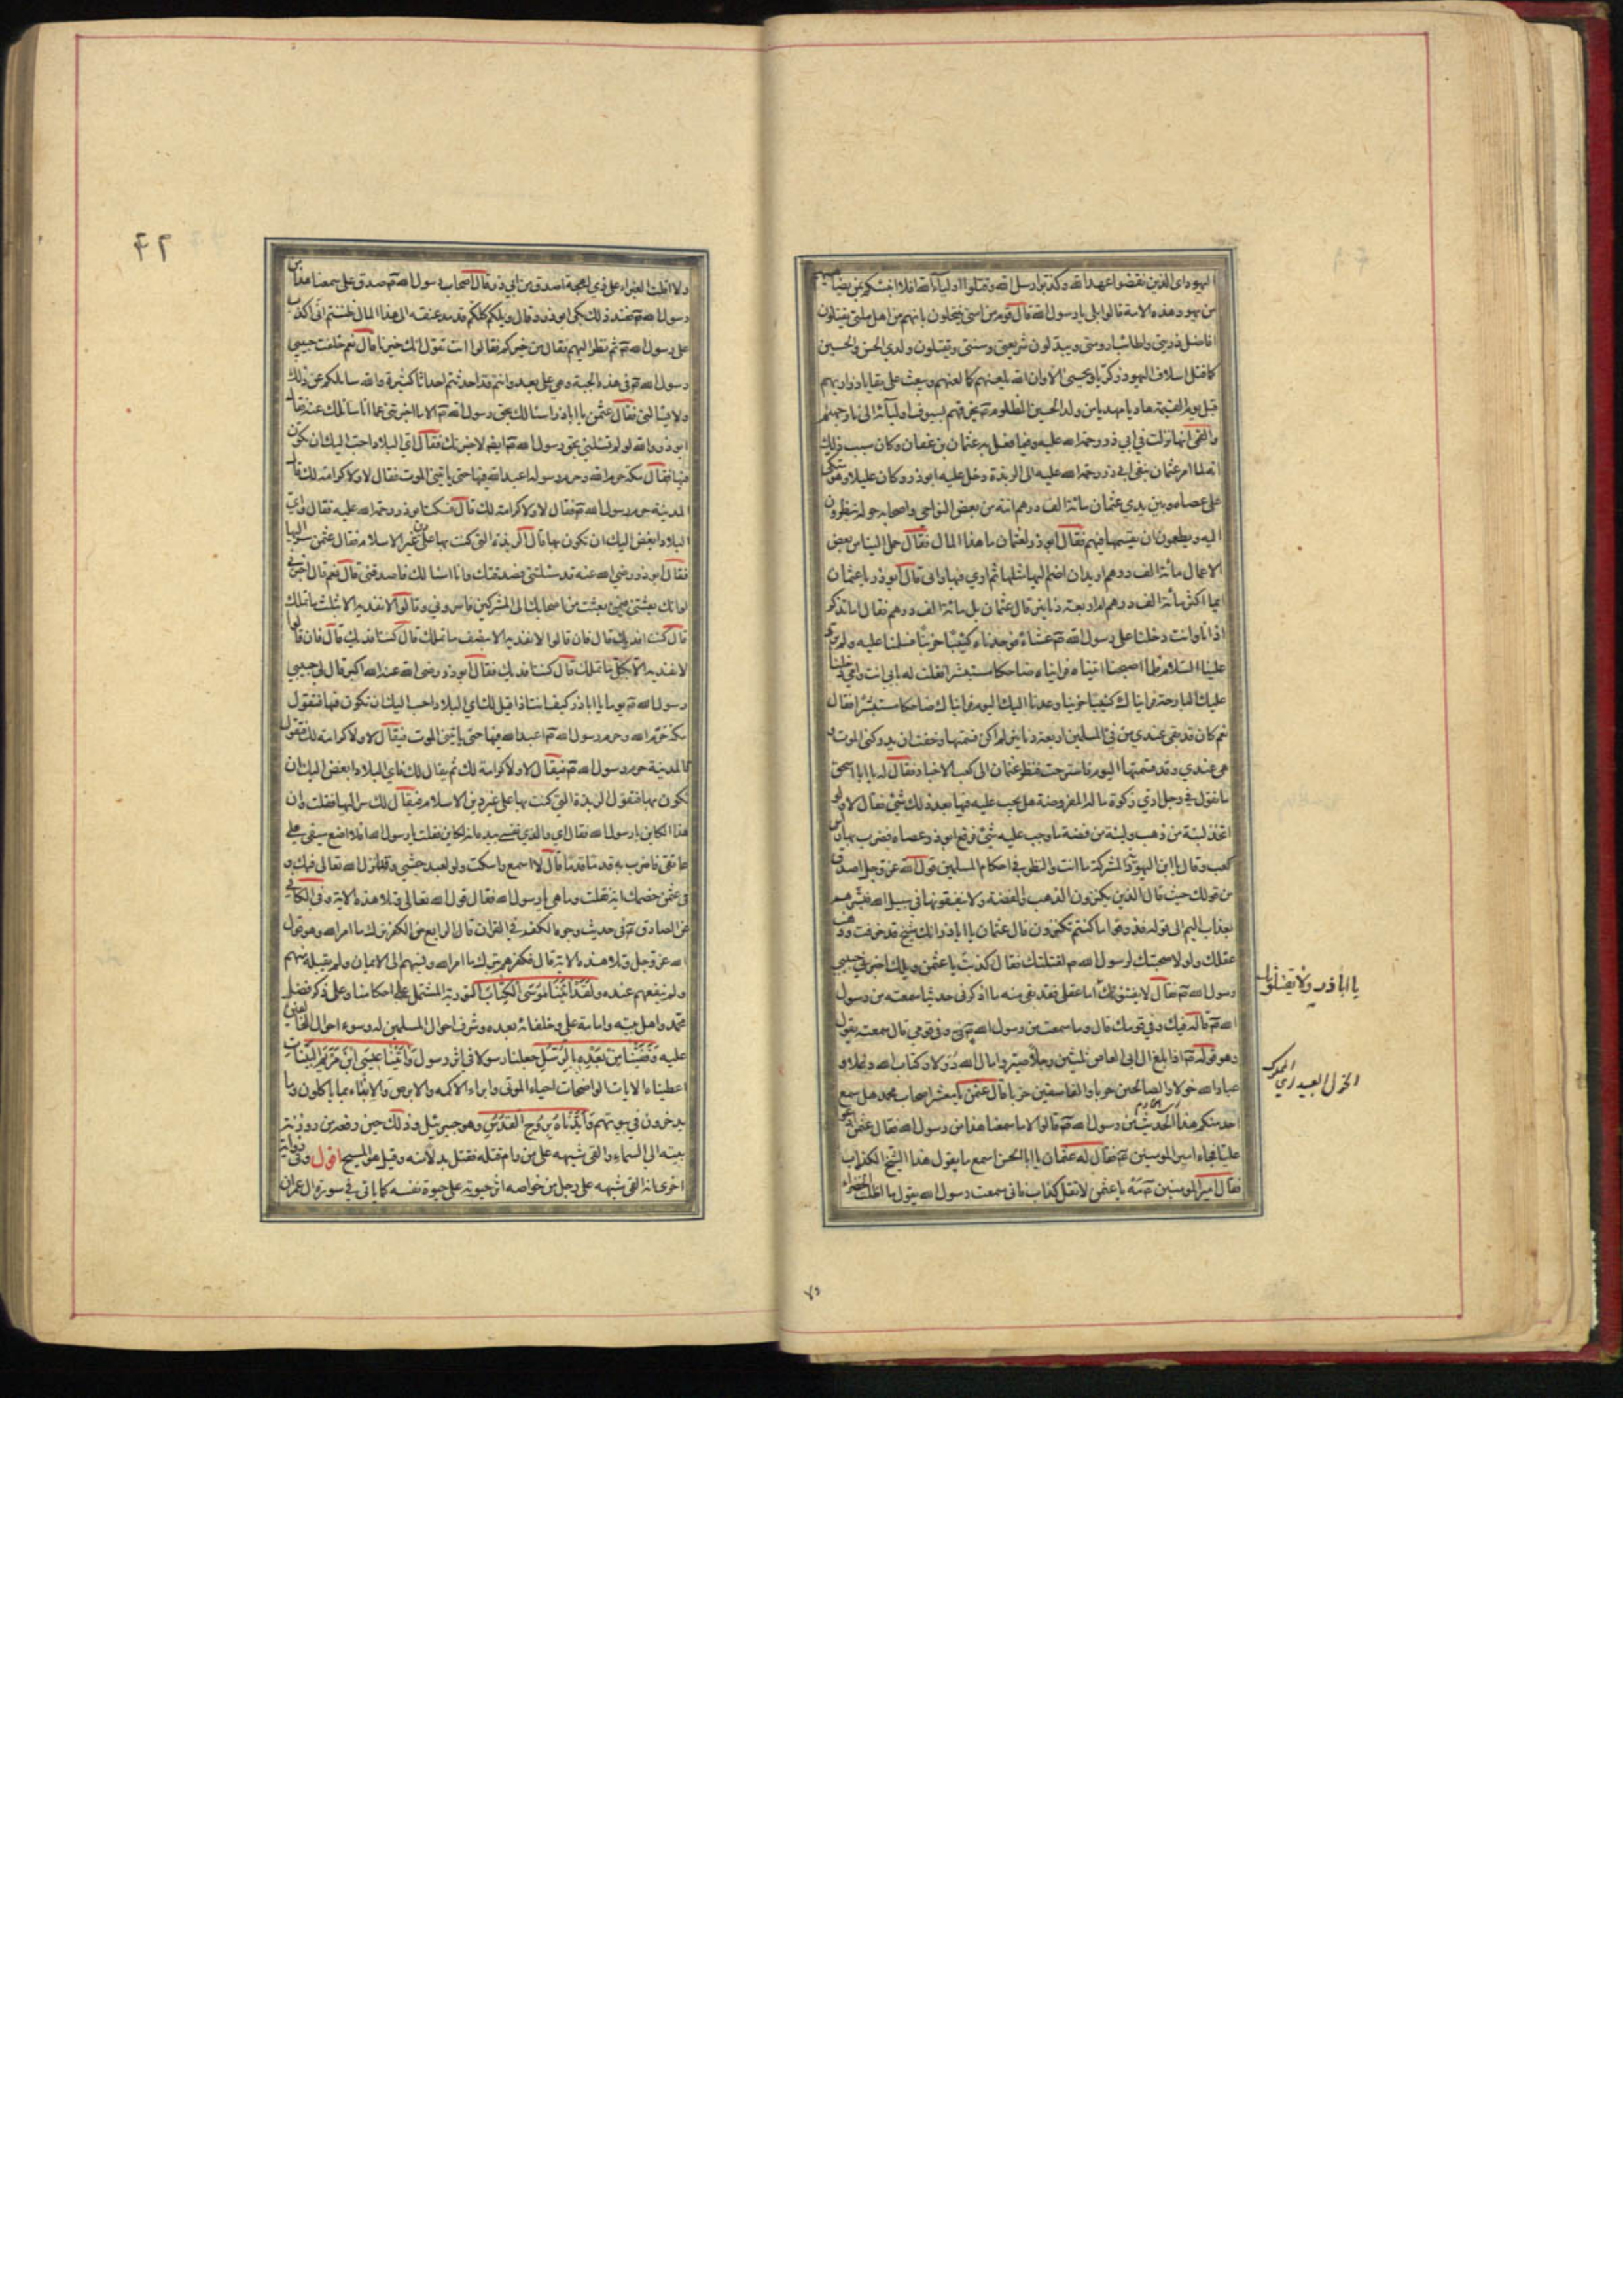 اليهود اي الذين نقضوا عهد الله وكذبوا رسل الله وقتلوا اولياء الله افلا انبئكم بمن يضاهيهم
من يهود هذه الامة قالوا بلى يا رسول الله قال قوم من امتي ينتحلون بانهم من اهل ملتي يقتلون
افاضل ذريتي واطائب ارومتي ويبدلون شريعتي وسنتي ويقتلون ولدي الحسن والحسين
كما قتل اسلاف اليهود زكريا ويحيى الا وان الله يلعنهم كما لعنهم ويبعث على بقايا ذراريهم
قبل يوم القيمة هاديا مهديا من ولد الحسين المظلوم يحرقهم بسيوف اوليائه الى نار جهنم
والقمي انها نزلت في ابي ذر رحمة الله عليه وفيما فعل به عثمان بن عفان وكان سبب ذلك
انه لما امر عثمان بنفي ابي ذر رحمة الله عليه الى الربذة دخل عليه ابو ذر وكان عليلا وهو متكئ
على عصاه وبين يدي عثمان مائة الف درهم اتته من بعض النواحي واصحابه حوله ينظرون
اليه ويطمعون ان يقسمها فيهم فقال ابو ذر لعثمان ما هذا المال فقال حمل الينا من بعض
الاعمال مائة الف درهم اريد ان اضم اليها مثلها ثم اري فيها رايي قال ابو ذر يا عثمان
ايما اكثر مائة الف درهم ام اربعة دنانير قال عثمان بل مائة الف درهم فقال اما تذكر
اذ انا وانت دخلنا على رسول الله عشاء فوجدناه كئيبا حزينا فسلمنا عليه ولم يرد
علينا السلام فلما اصبحنا اتيناه فرايناه ضاحكا مستبشرا فقلت له بابي انت وامي دخلنا
عليك البارحة فرايناك كئيبا حزينا وعدنا اليك اليوم فرايناك ضاحكا مستبشرا فقال
نعم كان قد بقي عندي من فئ المسلمين اربعة دنانير لم اكن قسمتها وخفت ان يدركني الموت و
هي عندي وقد قسمتها اليوم فاسترحت فنظر عثمان الى كعب الاحبار فقال له يا ابا اسحق
ما تقول في رجل ادى زكوة ماله المفروضة هل يجب عليه فيها بعد ذلك شئ فقال لا ولو
اتخذ لبنة من ذهب ولبنة من فضة ما وجب عليه شئ فرفع ابو ذر عصاه فضرب بها راس
كعب وقال يا ابن اليهودية المشركة ما انت والنظر في احكام المسلمين قول الله عز وجل اصدق
من قولك حيث قال الذين يكنزون الذهب والفضة ولا ينفقونها في سبيل الله فبشرهم
بعذاب اليم الى قوله فذوقوا ما كنتم تكنزون قال عثمان يا ابا ذر انك شيخ قد خرفت وذهب
عقلك ولولا صحبتك لرسول الله لقتلتك فقال كذبت يا عثمن ويلك اخبرني حبيبي
رسول الله فقال لا يفتنونك اما عقلي فقد بقي منه ما اذكرني حديثا سمعته من رسول
الله قاله فيك وفي قومك قال وما سمعت من رسول الله في وفي قومي قال سمعته يقول
وهو قوله اذا بلغ ال ابي العاص ثلثين رجلا صيروا مال الله دولا وكتاب الله دغلا و
عباد الله خولا والصالحين حربا والفاسقين حزبا قال عثمن يا معشر اصحاب محمد هل سمع
احد منكم هذا الحديث من رسول الله قالوا لا ما سمعنا هذا من رسول الله فقال عثمن ادعوا
عليا فجاء امير المومنين فقال له عثمان يا ابا الحسن اسمع ما يقول هذا الشيخ الكذاب
فقال امير المومنين مه يا عثمن لا تقل كذاب فاني سمعت رسول الله يقول ما اظلت الخضراء
يا اباذر ولا يقتلونك
الخول العبيد اي المملوك
ولا اقلت الغبراء على ذي لهجة اصدق من ابي ذر قال اصحاب رسول الله صدق علي سمعنا هذا من
رسول الله فعند ذلك بكى ابو ذر وقال ويلكم كلكم قد مد عنقه الى هذا المال ظننتم اني اكذب
على رسول الله ثم نظر اليهم فقال من خيركم فقالوا انت تقول انك خيرنا قال نعم خلفت حبيبي
رسول الله في هذه الجبة وهي علي بعد وانتم قد احدثتم احداثا كثيرة والله سائلكم عن ذلك
ولا يسالني فقال عثمن يا ابا ذر اسالك بحق رسول الله الا ما اخبرتني عما انا سائلك عنه فقال
ابو ذر والله لو لم تسئلني بحق رسول الله ايضا لاخبرتك فقال اي البلاد احب اليك ان تكون
فيها فقال مكة حرم الله وحرم رسوله اعبد الله فيها حتى ياتيني الموت فقال لا ولا كرامة لك قال
المدينة حرم رسول الله فقال لا ولا كرامة لك قال فسكت ابو ذر رحمة الله عليه فقال واي
البلاد ابغض اليك ان تكون بها قال الربذة التي كنت بها على غير دين الاسلام فقال عثمن سر اليها
فقال ابو ذر رضي الله عنه قد سئلتني فصدقتك وانا اسالك فاصدقني قال نعم قال اخبرني
لو انك بعثتني فيمن بعثت من اصحابك الى المشركين فاسروني وقالوا لا نفديه الا بثلث ما تملك
قال كنت افديك قال فان قالوا لا نفديه الا بنصف ما تملك قال كنت افديك قال فان قالوا
لا نفديه الا بكل ما تملك قال كنت افديك فقال ابو ذر رضي الله عنه الله اكبر قال لي حبيبي
رسول الله يوما يا ابا ذر كيف انت اذا قيل لك اي البلاد احب اليك ان تكون فيها فتقول
مكة حرم الله وحرم رسول الله اعبد الله فيها حتى ياتيني الموت فيقال لا ولا كرامة لك فتقول
فالمدينة حرم رسول الله فيقال لا ولا كرامة لك ثم يقال لك فاي البلاد ابغض اليك ان
تكون بها فتقول الربذة التي كنت بها على غير دين الاسلام فيقال لك سر اليها فقلت وان
هذا الكاين يا رسول الله فقال اي والذي نفسي بيده انه لكاين فقلت يا رسول الله افلا اضع سيفي على
عاتقي فاضرب به قدما قدما قال لا اسمع واسكت ولو لعبد حبشي وقد انزل الله تعالى فيك و
في عثمن خصمك اية فقلت وما هي يا رسول الله فقال قول الله تعالى وتلا هذه الاية وفي الكافي
عن الصادق في حديث وجوه الكفر في القران قال الرابع من الكفر ترك ما امر الله وهو قول
الله عز وجل وتلا هذه الاية قال فكفرهم بترك ما امر الله ونسبهم الى الايمان ولم يقبله منهم
ولم ينفعهم عنده ولقد اتينا موسى الكتاب التورية المشتمل على احكامنا وعلى ذكر فضل
محمد واهل بيته وامامة علي وخلفائه بعده وشرف احوال المسلمين له وسوء احوال المخالفين
عليه وقفينا من بعده بالرسل جعلنا رسولا في اثر رسول واتينا عيسى ابن مريم البينات
اعطيناه الايات الواضحات احياء الموتى وابراء الاكمه والابرص والانباء بما ياكلون وما
يدخرون في بيوتهم وايدناه بروح القدس وهو جبرئيل وذلك حين رفعه من روزنة
بيته الى السماء والقى شبهه على من رام قتله فقتل بدلا منه وقيل هو المسيح اقول وفي رواية
اخرى انه القى شبهه على رجل من خواصه اثر حيوته على حيوة نفسه كما ياتي في سورة ال عمران